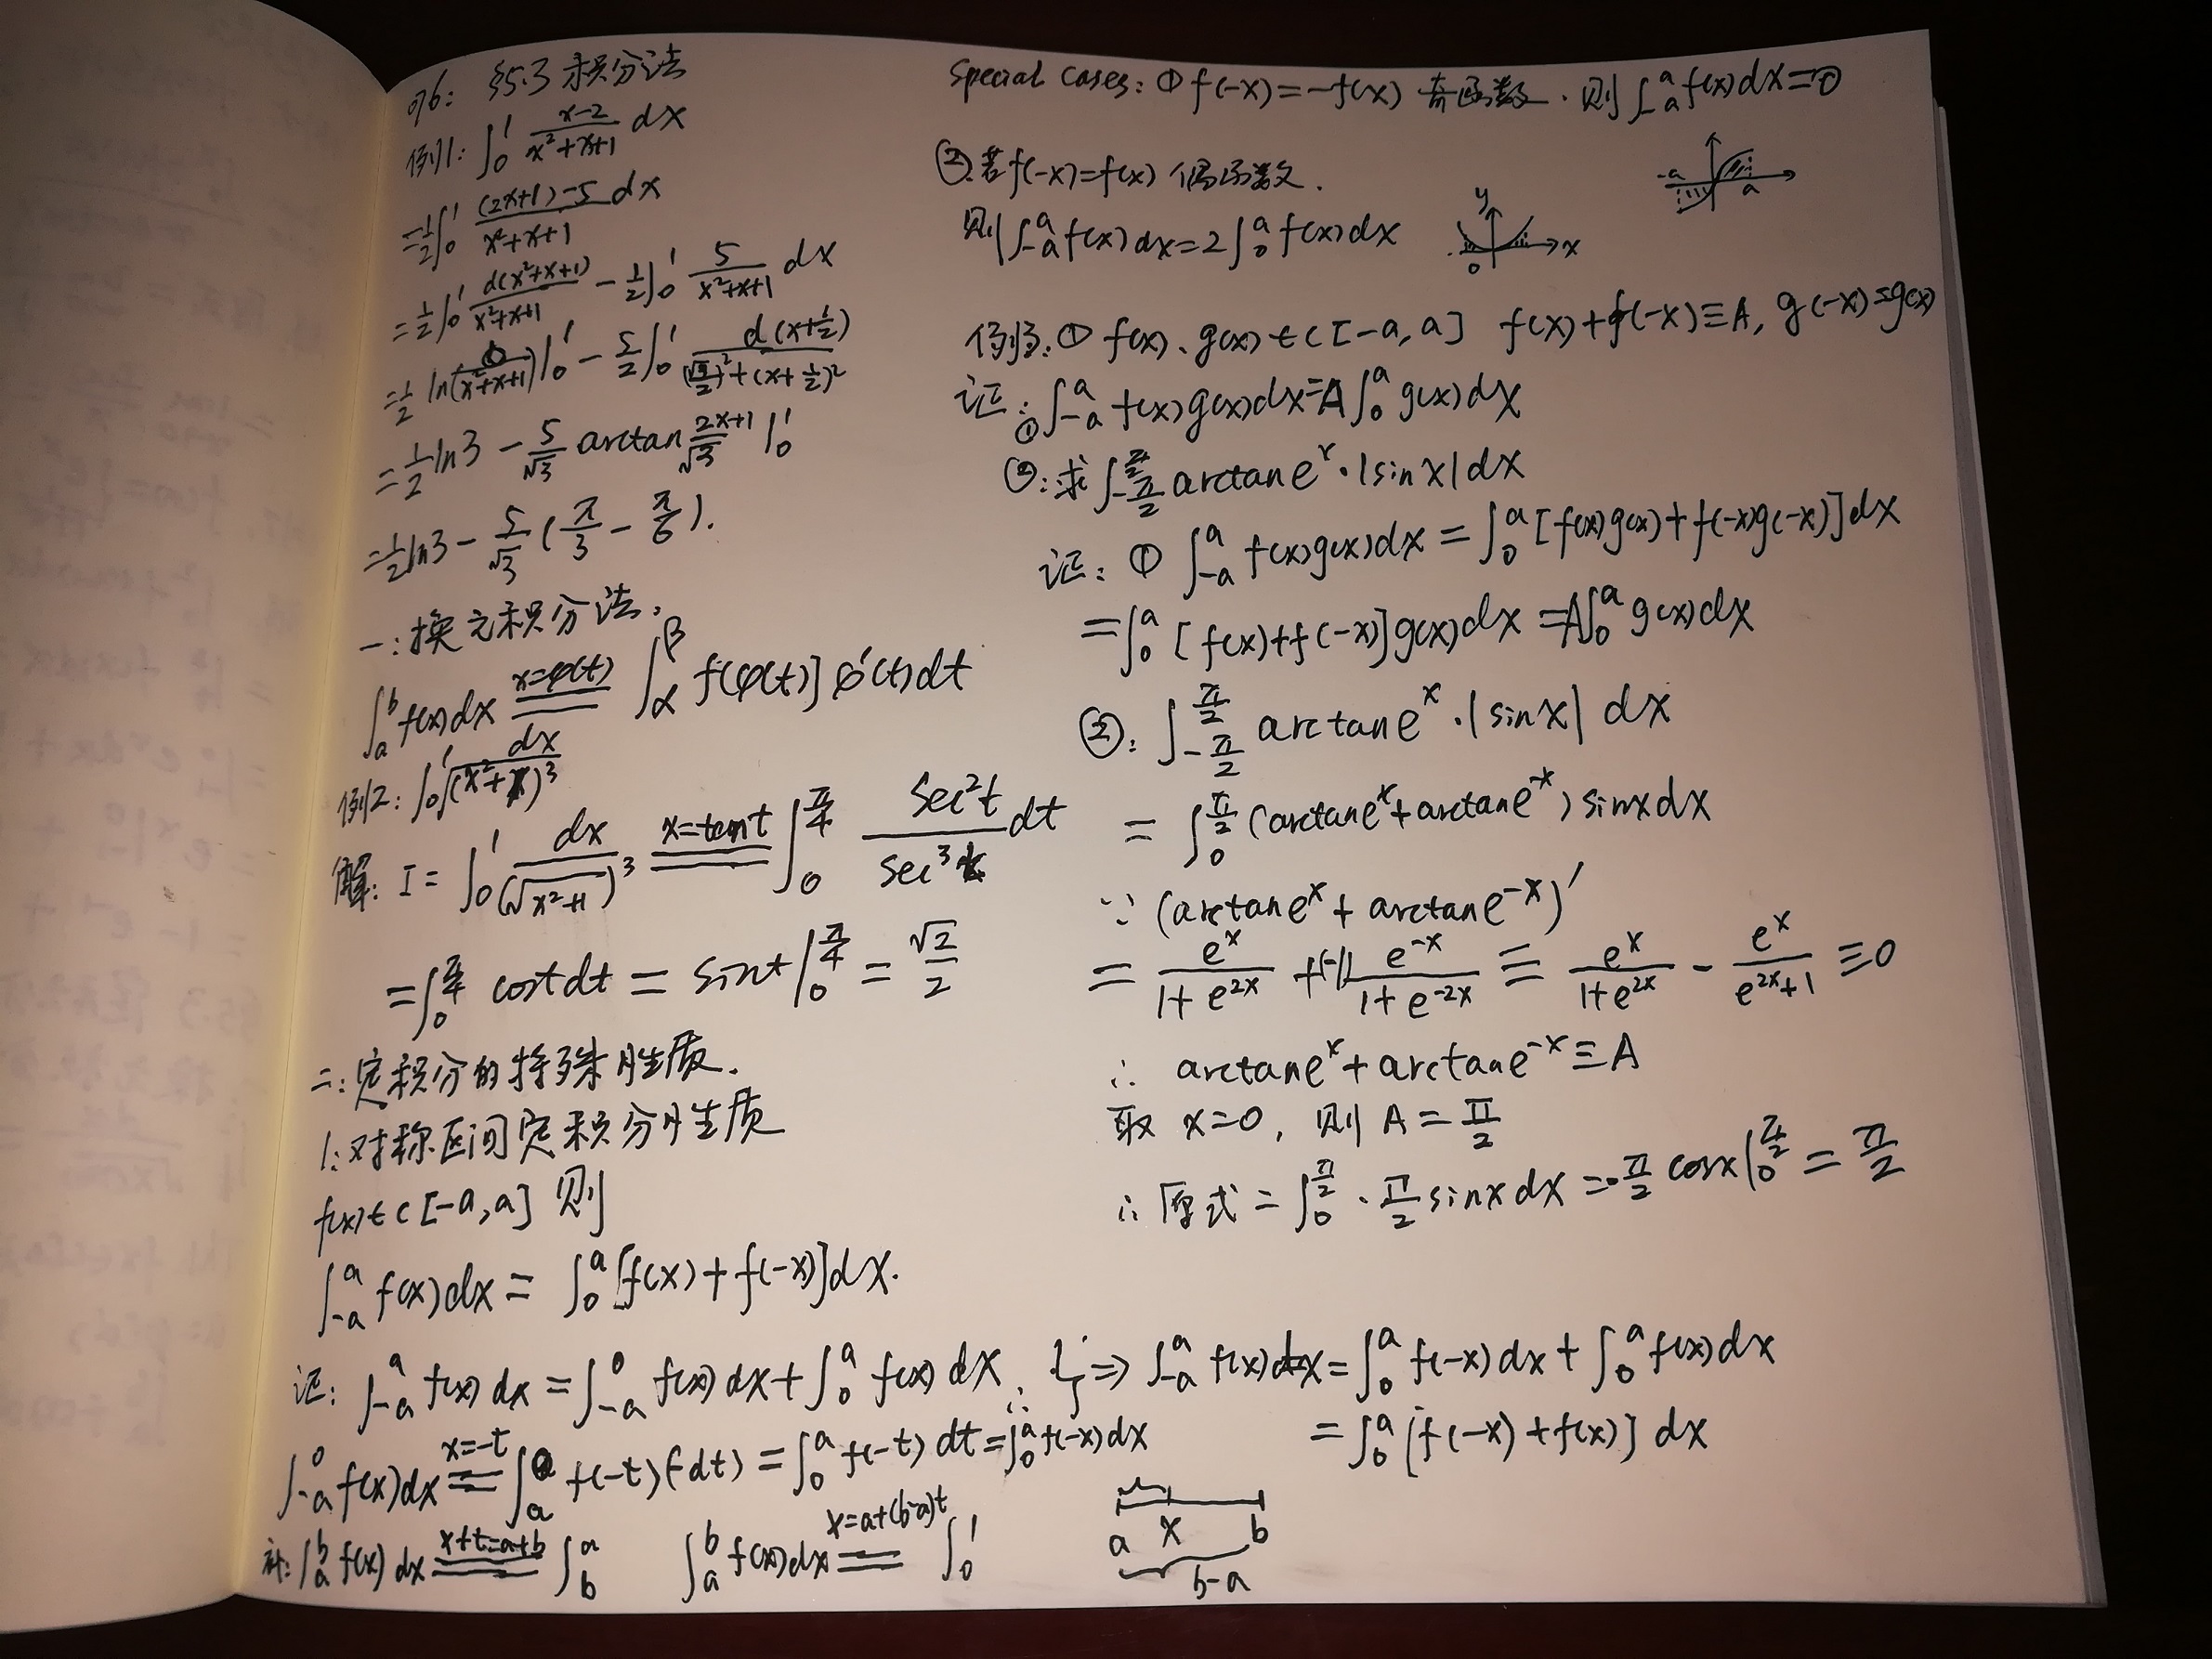 076: §5.3 积分法
例1: ∫₀¹ (x-2)/(x²+x+1) dx
=½∫₀¹ ((2x+1)-5)/(x²+x+1) dx
=½∫₀¹ d(x²+x+1)/(x²+x+1) - ½∫₀¹ 5/(x²+x+1) dx
=½ ln(x²+x+1)|₀¹ - 5/2 ∫₀¹ d(x+½)/((√3/2)²+(x+½)²)
=½ln3 - 5/√3 arctan (2x+1)/√3 |₀¹
=½ln3 - 5/√3 (π/3 - π/6).
一:换元积分法:
∫ₐᵇ f(x)dx =(x=φ(t))= ∫_α^β f[φ(t)]φ'(t)dt
例2: ∫₀¹ dx/√(x²+1)³
解: I = ∫₀¹ dx/(√(x²+1))³ =(x=tant)= ∫₀^(π/4) sec²t/sec³t dt
=∫₀^(π/4) cost dt = sint|₀^(π/4) = √2/2
二:定积分的特殊性质.
1:对称区间定积分性质
f(x)∈C[-a,a] 则
∫₋ₐᵃ f(x)dx = ∫₀ᵃ [f(x)+f(-x)]dx.
证: ∫₋ₐᵃ f(x)dx = ∫₋ₐ⁰ f(x)dx + ∫₀ᵃ f(x)dx
∫₋ₐ⁰ f(x)dx =(x=-t)= ∫ₐ⁰ f(-t)(-dt) = ∫₀ᵃ f(-t)dt = ∫₀ᵃ f(-x)dx
∴ ⇒ ∫₋ₐᵃ f(x)dx = ∫₀ᵃ f(-x)dx + ∫₀ᵃ f(x)dx
= ∫₀ᵃ [f(-x)+f(x)] dx
补: ∫ₐᵇ f(x)dx =(x+t=a+b)= ∫_b^a
∫ₐᵇ f(x)dx =(x=a+(b-a)t)= ∫₀¹
a x b
b-a
Special cases: ① f(-x)=-f(x) 奇函数. 则∫₋ₐᵃ f(x)dx=0
-a a
②若f(-x)=f(x) 偶函数.
则∫₋ₐᵃ f(x)dx=2∫₀ᵃ f(x)dx
y
x
0
例3: ① f(x)、g(x)∈C[-a,a] f(x)+f(-x)≡A, g(-x)=g(x)
证:① ∫₋ₐᵃ f(x)g(x)dx=A∫₀ᵃ g(x)dx
②:求∫_(-π/2)^(π/2) arctan eˣ·|sinx|dx
证: ① ∫₋ₐᵃ f(x)g(x)dx = ∫₀ᵃ [f(x)g(x)+f(-x)g(-x)]dx
=∫₀ᵃ [f(x)+f(-x)]g(x)dx =A∫₀ᵃ g(x)dx
②: ∫_(-π/2)^(π/2) arctan eˣ·|sinx| dx
= ∫₀^(π/2) (arctan eˣ+arctan e⁻ˣ) sinx dx
∵ (arctan eˣ + arctan e⁻ˣ)'
= eˣ/(1+e²ˣ) + (-1) e⁻ˣ/(1+e⁻²ˣ) ≡ eˣ/(1+e²ˣ) - eˣ/(e²ˣ+1) ≡0
∴ arctan eˣ + arctan e⁻ˣ ≡ A
取 x=0, 则 A = π/2
∴ 原式 = ∫₀^(π/2) · π/2 sinx dx = -π/2 cosx|₀^(π/2) = π/2